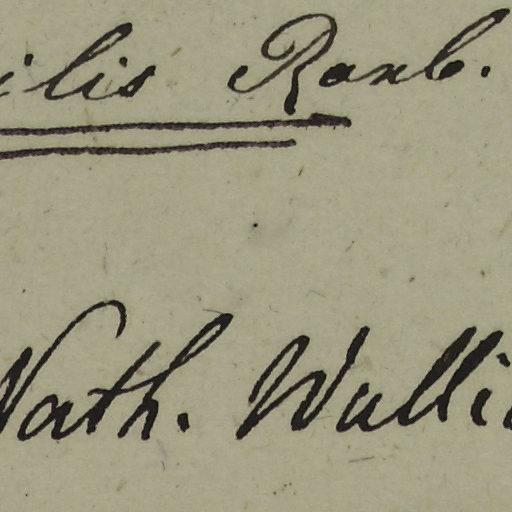 ilis Roxb.
Nath. Walli